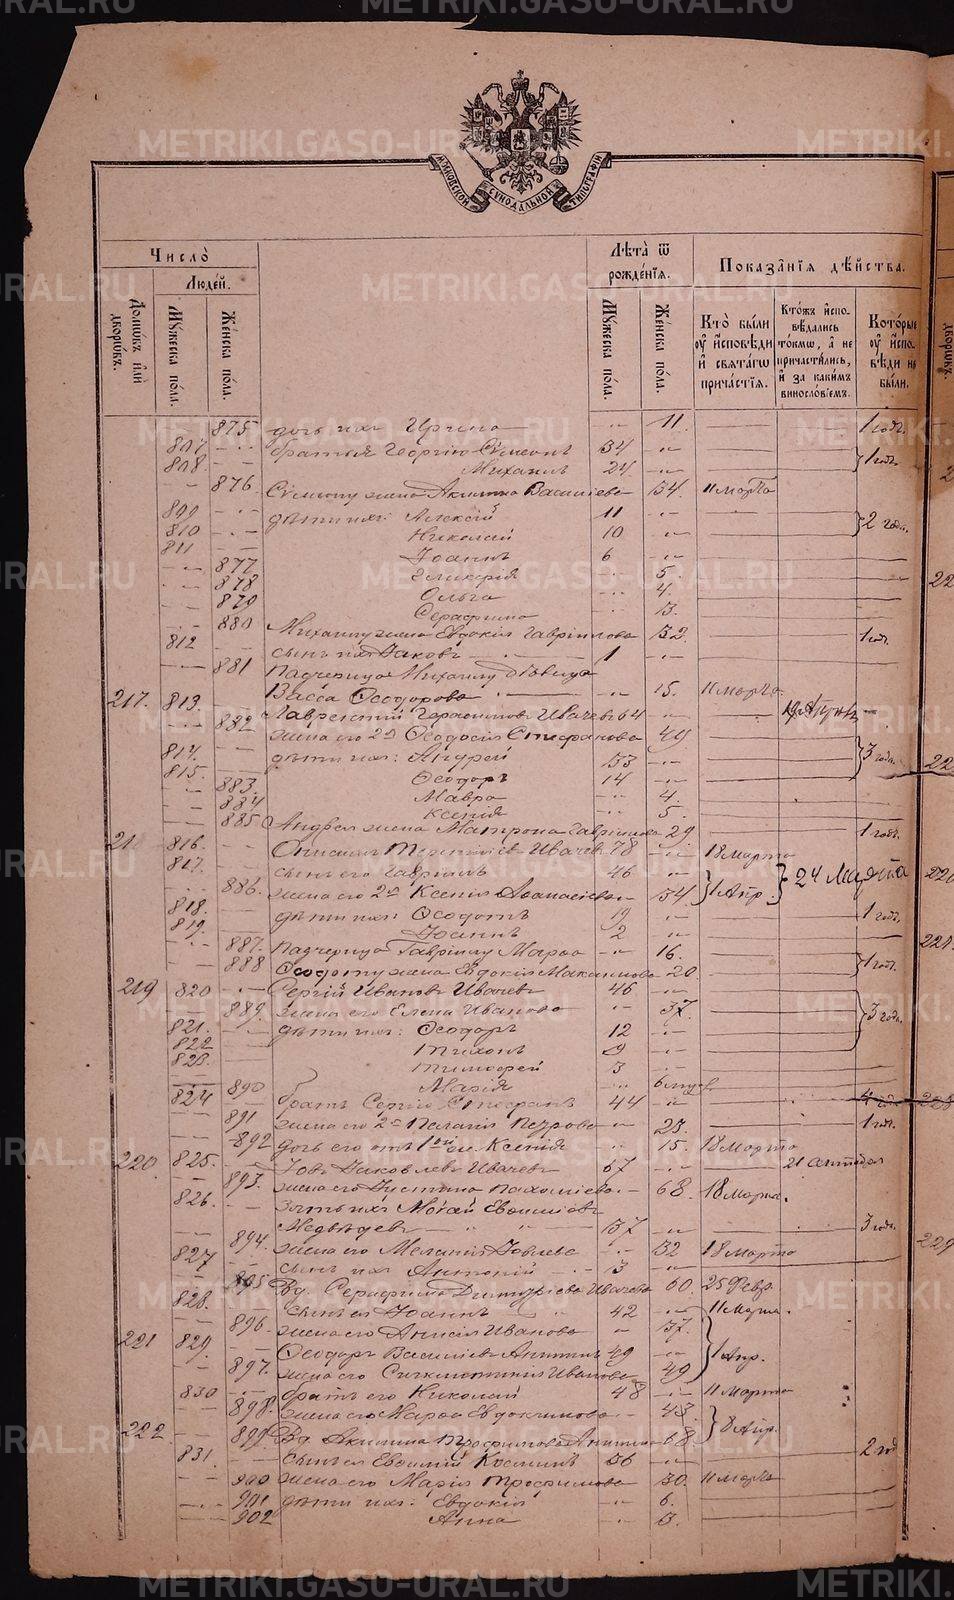 МОСКОВСКОЙ СѴНОДАЛЬНОЙ ТИПОГРАФІИ
Число̀
Людей.
Домѡвъ или дворѡвъ.
Мꙋжеска пола.
Женска пола.
Лѣта̀ ѿ рожденїѧ.
Мꙋжеска пола.
Женска пола.
Показанїѧ дѣйства.
Кто̀ были ᲂу҆ исповѣди и҆ свѧтагѡ причастїѧ.
Ктожъ исповѣдались токмѡ, а҆ не причастились, и҆ за какимъ винословїемъ.
Которые ᲂу҆ исповѣди не были.
875 дочь ихъ Ирина 11. 1 годъ.
807 братья Георгію Сѵмеонъ 34
808. Михаилъ 24 1 годъ.
876. Сѵмеону жена Акилина Васильева 34. 11 марта
809 дѣти ихъ: Алексій 11
810 Николай 10 2 года.
811 Іоаннъ 6
877 Гликерія 5.
878 Ольга 4.
879 Серафима 3.
880 Михаилу жена Евдокія Гавріилова 32. 1 год.
812 сынъ ихъ Іаковъ 1
881 Падчерица Михаилу дѣвица
Васса Ѳеодорова 15. 11 марта.
217. 813. Лаврентій Герасимовъ Ивачевъ 64
882 жена его 2я Ѳеодосія Стефанова 49
814. дѣти ихъ: Андрей 33 3 года.
815. Ѳеодоръ 14
883. Мавра 4
884 Ксенія 5.
885 Андрея жена Матрона Гавріилова 29 1 годъ.
218 816. Онисимъ Терентьевъ Ивачевъ 78 18 марта
817. сынъ его Гавріилъ 46 1 Апр. 24 Марта
886. жена его 2я Ксенія Аѳанасіева 34
818. дѣти ихъ: Ѳеодотъ 19 1 годъ.
819. Іоаннъ 2
887. Падчерица Гавріилу Марѳа 16.
888 Ѳеодоту жена Евдокія Максимова 20 1 годъ.
219 820 Сергій Ивановъ Ивачевъ 46
889. жена его Елена Иванова 37.
821. дѣти ихъ: Ѳеодоръ 12 3 года.
822 Тихонъ 9
823. Тимоѳей 3
890 Марія 6 мѣсяц
824 братъ Сергію Стефанъ 44 4 года
891 жена его 2я Пелагія Петрова 23. 1 годъ.
892 дочь его отъ 1ой ж. Ксенія 15. 18 марта
220 825. Іовъ Іаковлевъ Ивачевъ 67
893. жена его Іустина Пахоміева 68. 18 марта.
826. Зять ихъ Моѵсей Евѳиміевъ
Медвѣдевъ 37 3 года.
894. жена его Меланія Іовлева 32 18 марта
827 сынъ ихъ Антоній 3
895 Вд. Серафима Димитріева Ивачева 60. 25 Февр.
828. сынъ ея Іоаннъ 42 11 Марта.
896. жена его Анисія Иванова 37.
221 829. Ѳеодоръ Васильевъ 49 1 Апр.
897. жена его Синклитикія Иванова 49
830 братъ его Николай 48 11 Марта
898. жена его Марѳа Евдокимова 43. 8 Апр.
222 899 Вд. Акилина Трофимова 68.
831. сынъ ея Евѳимій Косминъ 36 2 год
900 жена его Марія Трофимова 30. 11 марта
901 дѣти ихъ: Евдокія 6.
902 Анна 3.
METRIKI.GASO-URAL.RU